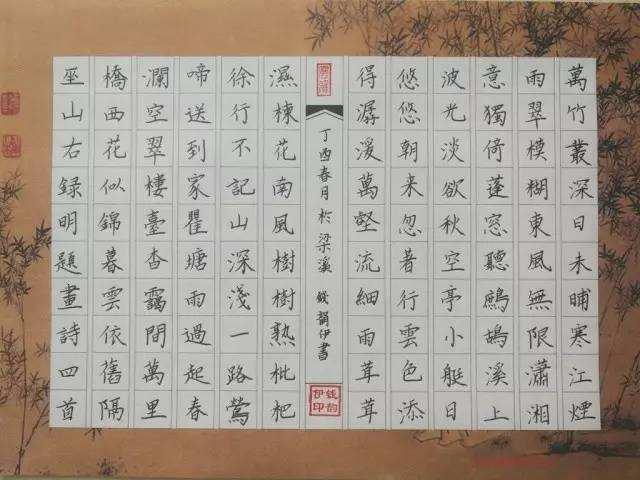 萬竹叢深日未晡寒江煙
雨翠模糊東風無限瀟湘
意獨倚蓬窓聽鷓鴣溪上
波光淡欲秋空亭小艇日
悠悠朝来忽著行雲色添
得潺湲萬壑流細雨茸茸
丁酉春月於梁溪 钱韻伊書
钱韵伊印
濕楝花南風樹樹熟枇杷
徐行不記山深淺一路鶯
啼送到家瞿塘雨過起春
瀾空翠樓臺杳靄間萬里
橋西花似錦暮雲依舊隔
巫山右録明題畫詩四首